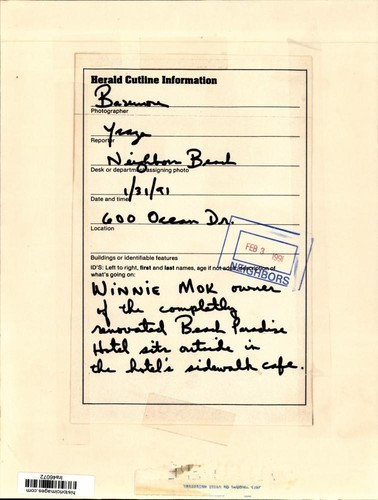 Herald Cutline Information
Bazemore
Photographer
Reporter
Neighbors Beach
Desk or department assigning photo
1/31/91
Date and time
600 Ocean Dr.
Location
Buildings or identifiable features
FEB 3 1991
NEIGHBORS
ID'S: Left to right, first and last names, age if not adult, description of
what's going on:
WINNIE MOK owner
of the completly
renovated Beach Paradise
Hotel sits outside in
the hotel's sidewalk cafe.
historicimages.com